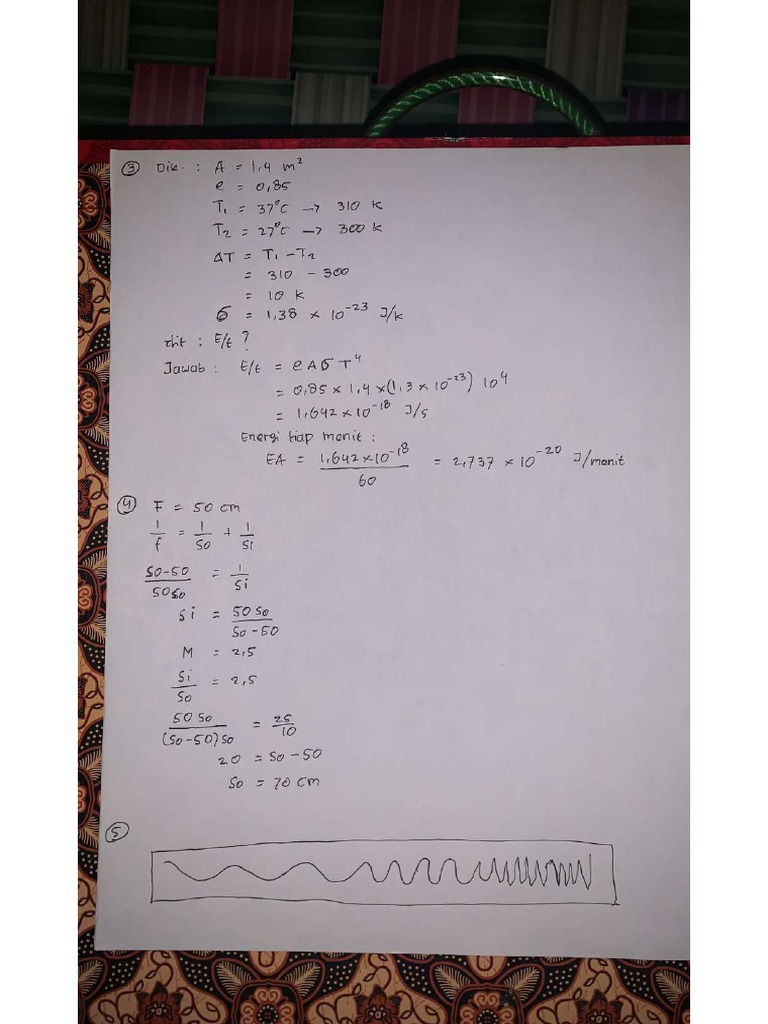 ③ Dik. : A = 1,4 m²
e = 0,85
T₁ = 37°C → 310 K
T₂ = 27°C → 300 K
ΔT = T₁ - T₂
= 310 - 300
= 10 K
σ = 1,38 × 10⁻²³ J/K
dit : E/t ?
Jawab : E/t = e A σ T⁴
= 0,85 × 1,4 × (1,3 × 10⁻²³) 10⁴
= 1,642 × 10⁻¹⁸ J/s
Energi tiap menit :
EA = 1,642 × 10⁻¹⁸ / 60 = 2,737 × 10⁻²⁰ J/menit
④ F = 50 cm
1/f = 1/So + 1/Si
So-50 / 50So = 1/Si
Si = 50 So / So - 50
M = 2,5
Si / So = 2,5
50 So / (So - 50) So = 25/10
20 = So - 50
So = 70 cm
⑤